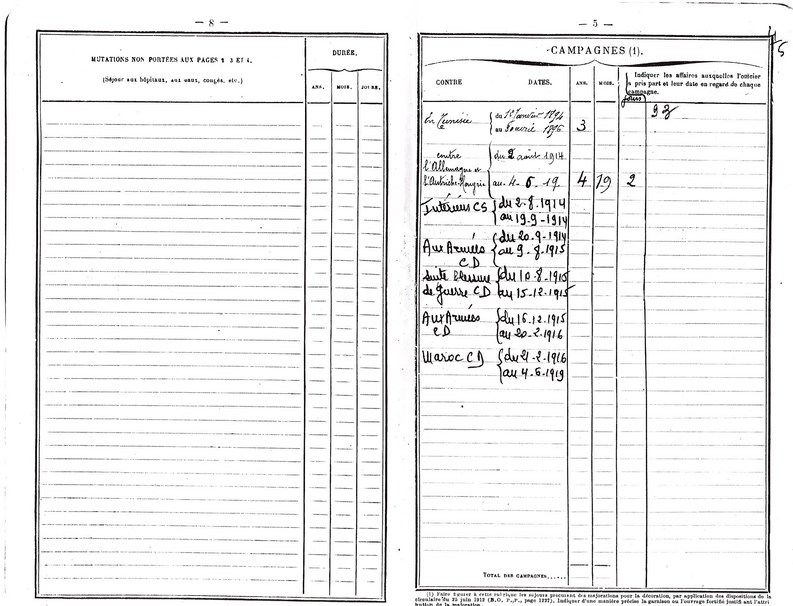 — 8 —
MUTATIONS NON PORTÉES AUX PAGES 2 3 ET 4.
(Séjour aux hôpitaux, aux eaux, congés, etc.)
DURÉE.
ANS. MOIS. JOURS.
— 5 —
5
CAMPAGNES (1).
CONTRE DATES. ANS. MOIS.
Indiquer les affaires auxquelles l'officier
a pris part et leur date en regard de chaque
campagne.
jours
93
En Tunisie du 1er Janvier 1894
au 1896 3
contre du 2 août 1914
l'Allemagne et
l'Autriche-Hongrie au 4-6-19 4 19 2
Intérieur CS du 2-8-1914
au 19-9-1914
du 20-9-1914
Aux Armées au 9-8-1915
CD
Suite blessure du 10-8-1915
de Guerre CD au 15-12-1915
Aux Armées du 16-12-1915
CD au 20-2-1916
Maroc CD du 21-2-1916
au 4-6-1919
TOTAL DES CAMPAGNES......
(1) Faire figurer à cette rubrique les séjours procurant des majorations pour la décoration, par application des dispositions de la
circulaire du 25 juin 1912 (B.O. P.P., page 1237). Indiquer d'une manière précise la garnison ou l'ouvrage fortifié justifiant l'attri
bution de la majoration.